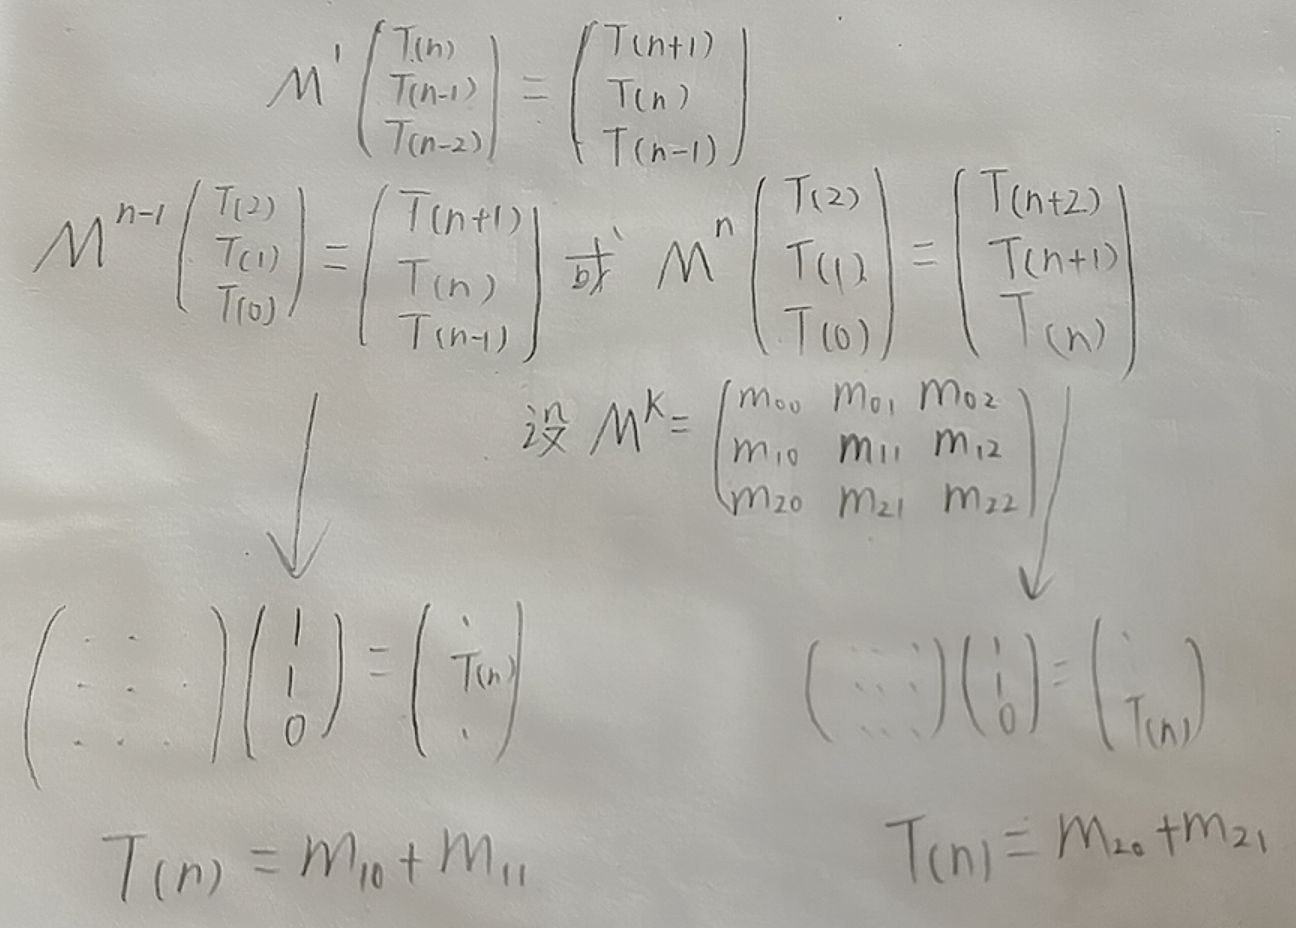 M¹ (T(n) T(n-1) T(n-2)) = (T(n+1) T(n) T(n-1))
Mⁿ⁻¹ (T(2) T(1) T(0)) = (T(n+1) T(n) T(n-1)) 或 Mⁿ (T(2) T(1) T(0)) = (T(n+2) T(n+1) T(n))
设 Mᴷ = (m₀₀ m₀₁ m₀₂ m₁₀ m₁₁ m₁₂ m₂₀ m₂₁ m₂₂)
(· · · · · · · ·) (1 1 0) = (· T(n) ·) (· · · · · · · · ·) (1 1 0) = (· T(n))
T(n) = m₁₀ + m₁₁ T(n) = m₂₀ + m₂₁